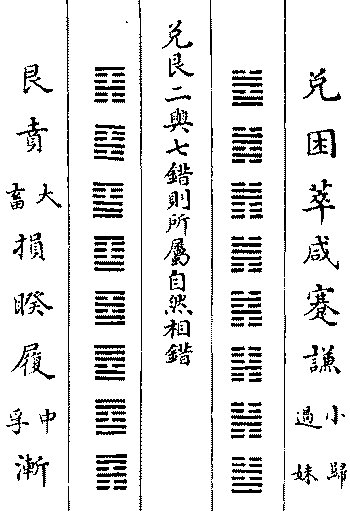 兌困萃咸蹇謙小過歸妹
兌艮二與七錯則所屬自然相錯
艮賁大畜損睽履中孚漸